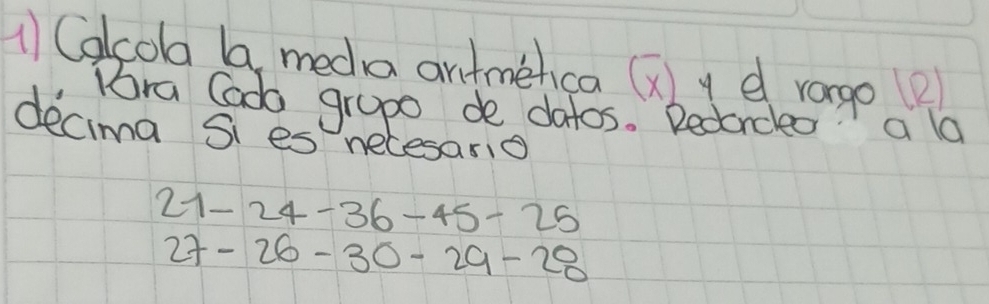 1) Calcola la media aritmética (x̄) y el rango (R)
Para Cada grupo de datos. Redondeo a la
décima Si es necesario
21-24-36-45-25
27-26-30-29-28